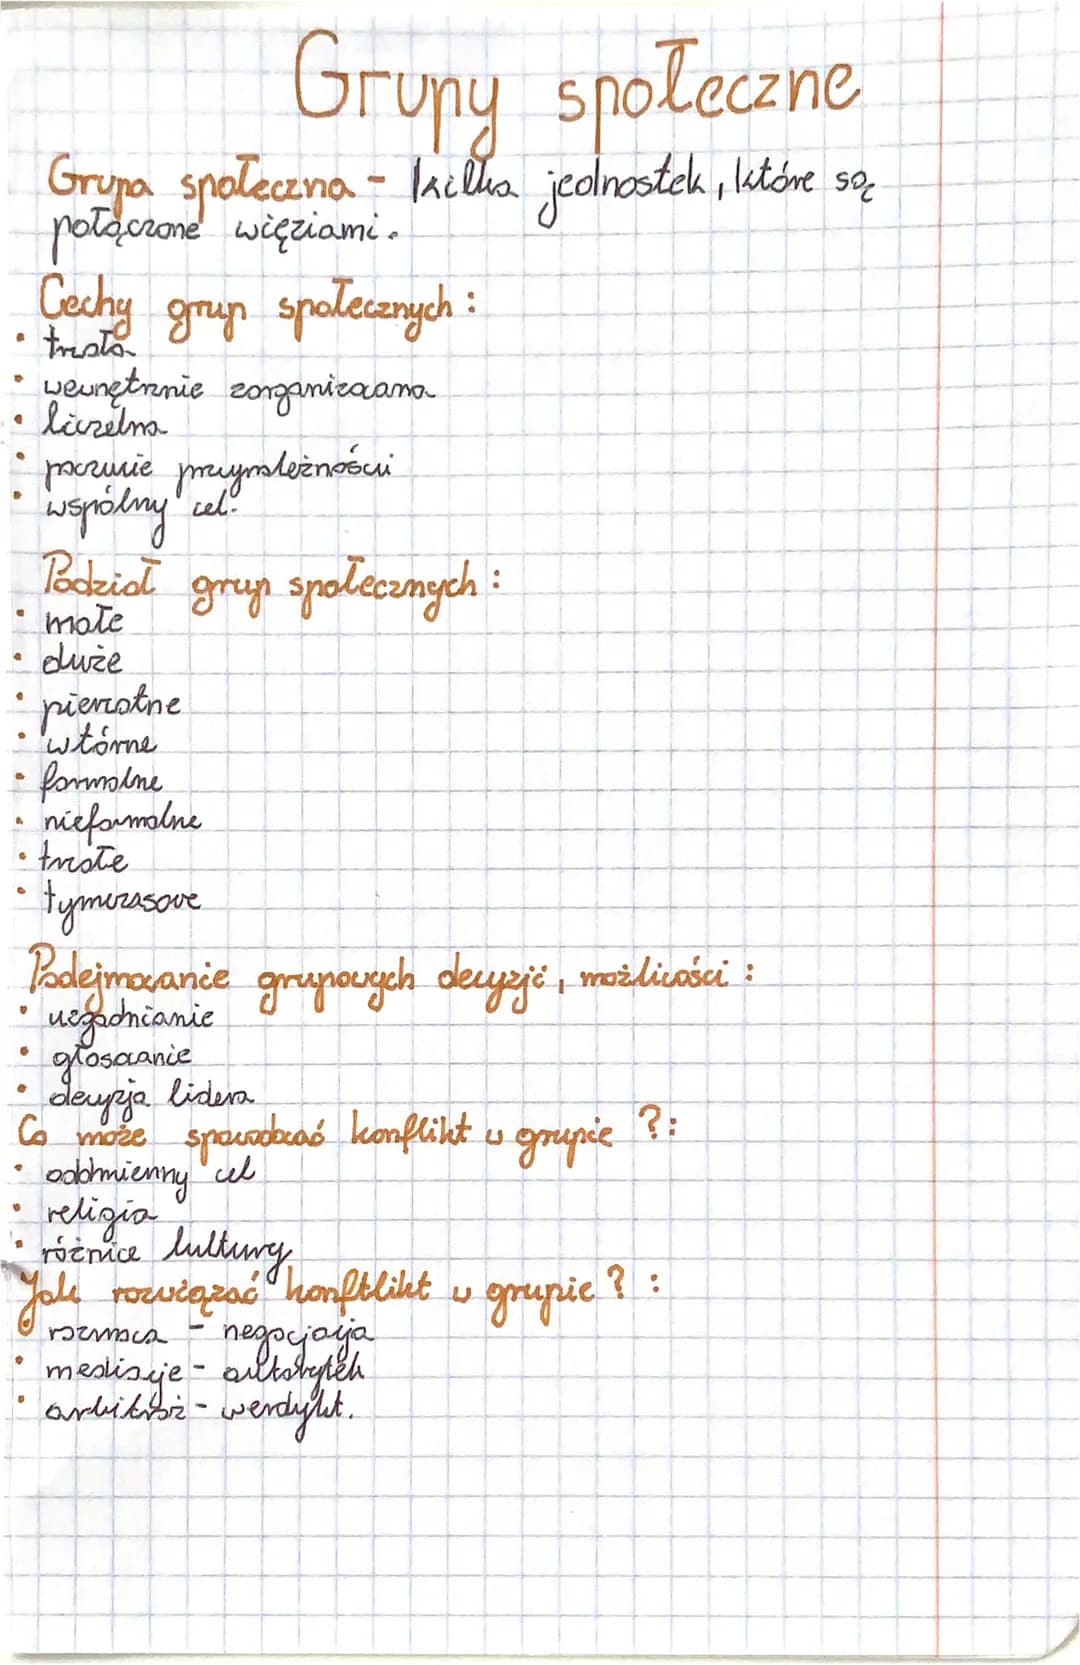 Grupy społeczne
Grupa społeczna - kilka jednostek, które są
połączone więziami.
Cechy grup społecznych:
• trwała
• wewnętrznie zorganizowana
• liczebna
• poczucie przynależności
• wspólny cel.
Podział grup społecznych:
• małe
• duże
• pierwotne
• wtórne
• formalne
• nieformalne
• trwałe
• tymczasowe
Podejmowanie grupowych decyzji, możliwości:
• uzgadnianie
• głosowanie
• decyzja lidera
Co może spowodować konflikt w grupie ?:
• oddmienny cel
• religia
• różnice kultury
Jak rozwiązać konftlikt w grupie? :
• rozmowa - negocjacja
• mediacje - autorytek
• arbitraż - werdykt.